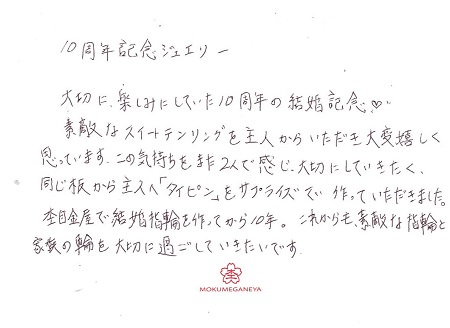 10周年記念ジュエリー
大切に、楽しみにしていた10周年の結婚記念♡
素敵なスイートテンリングを主人からいただき大変嬉しく
思っています。この気持ちをまた2人で感じ、大切にしていきたく、
同じ板から主人へ「タイピン」をサプライズで作っていただきました。
杢目金屋で結婚指輪を作ってから10年。これからも、素敵な指輪と
家族の輪を大切に過ごしていきたいです。
杢
MOKUMEGANEYA